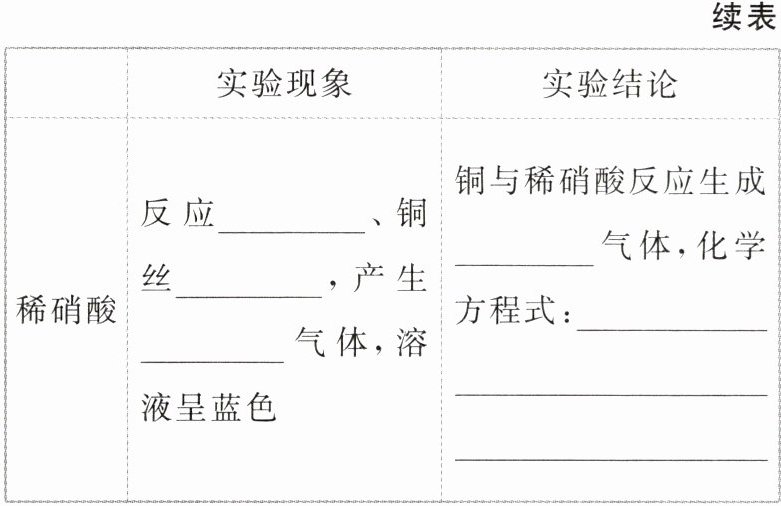 续表
实验现象
实验结论
稀硝酸
反应__________、铜
丝__________，产生
__________气体，溶
液呈蓝色
铜与稀硝酸反应生成
__________气体，化学
方程式：__________